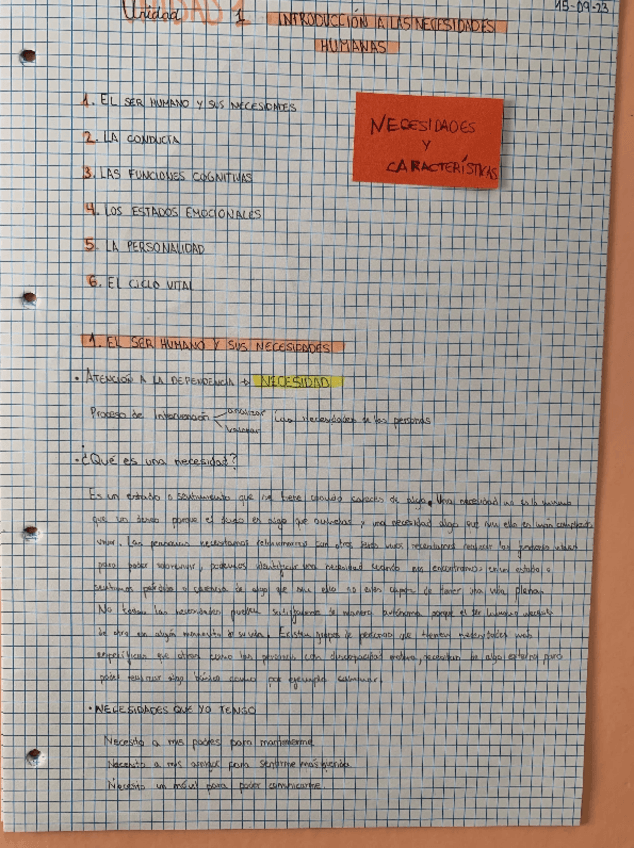 15-09-23
Unidad 1 INTRODUCCIÓN A LAS NECESIDADES
HUMANAS
1. EL SER HUMANO Y SUS NECESIDADES
2. LA CONDUCTA
3. LAS FUNCIONES COGNITIVAS
4. LOS ESTADOS EMOCIONALES
5. LA PERSONALIDAD
6. EL CICLO VITAL
NECESIDADES
Y
CARACTERÍSTICAS
1. EL SER HUMANO Y SUS NECESIDADES
• ATENCIÓN A LA DEPENDENCIA → NECESIDAD
Proceso de intervención analizar las necesidades de las personas
valorar
• ¿Qué es una necesidad?
Es un estado o sentimiento que se tiene cuando careces de algo. Una necesidad no es lo mismo
que un deseo porque el deseo es algo que anhelas y una necesidad algo que sin ello es
vivir. Las personas necesitamos relacionarnos con otros
para poder sobrevivir, podemos identificar una necesidad cuando nos encontramos en un estado o
sentimos pérdida o carencia de algo que sin ello no eres capaz de tener una vida plena.
No todas las necesidades pueden de manera autónoma porque el ser humano
de otro en algún momento de su vida. Existen grupos de personas que tienen necesidades más
específicas que otras como las personas con discapacidad motora, necesitan de algo externo para
poder realizar algo básico como por ejemplo caminar.
• NECESIDADES QUE YO TENGO
Necesito a mis padres para mantenerme
Necesito a mis amigos para sentirme más querida
Necesito un móvil para poder comunicarme